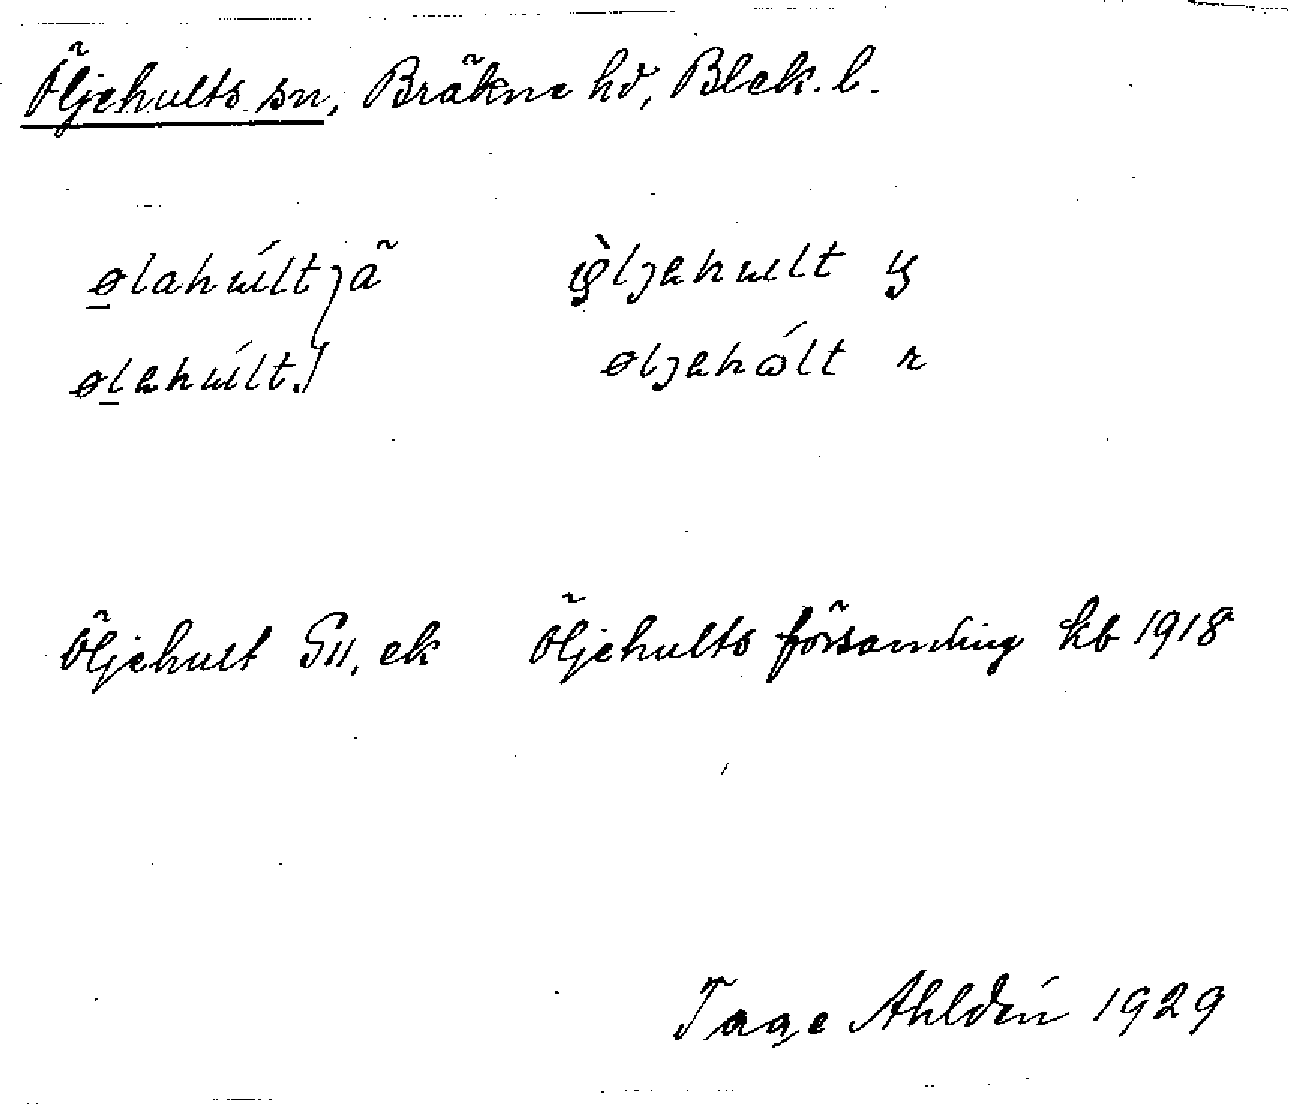 Öljehults sn, Bräkne hd, Blek. l.
ølahúltjä̃ ø̀ljehult y
ølehúlt. øljehólt r
Öljehult GS, ek Öljehults församling kb 1918
Tage Ahldén 1929